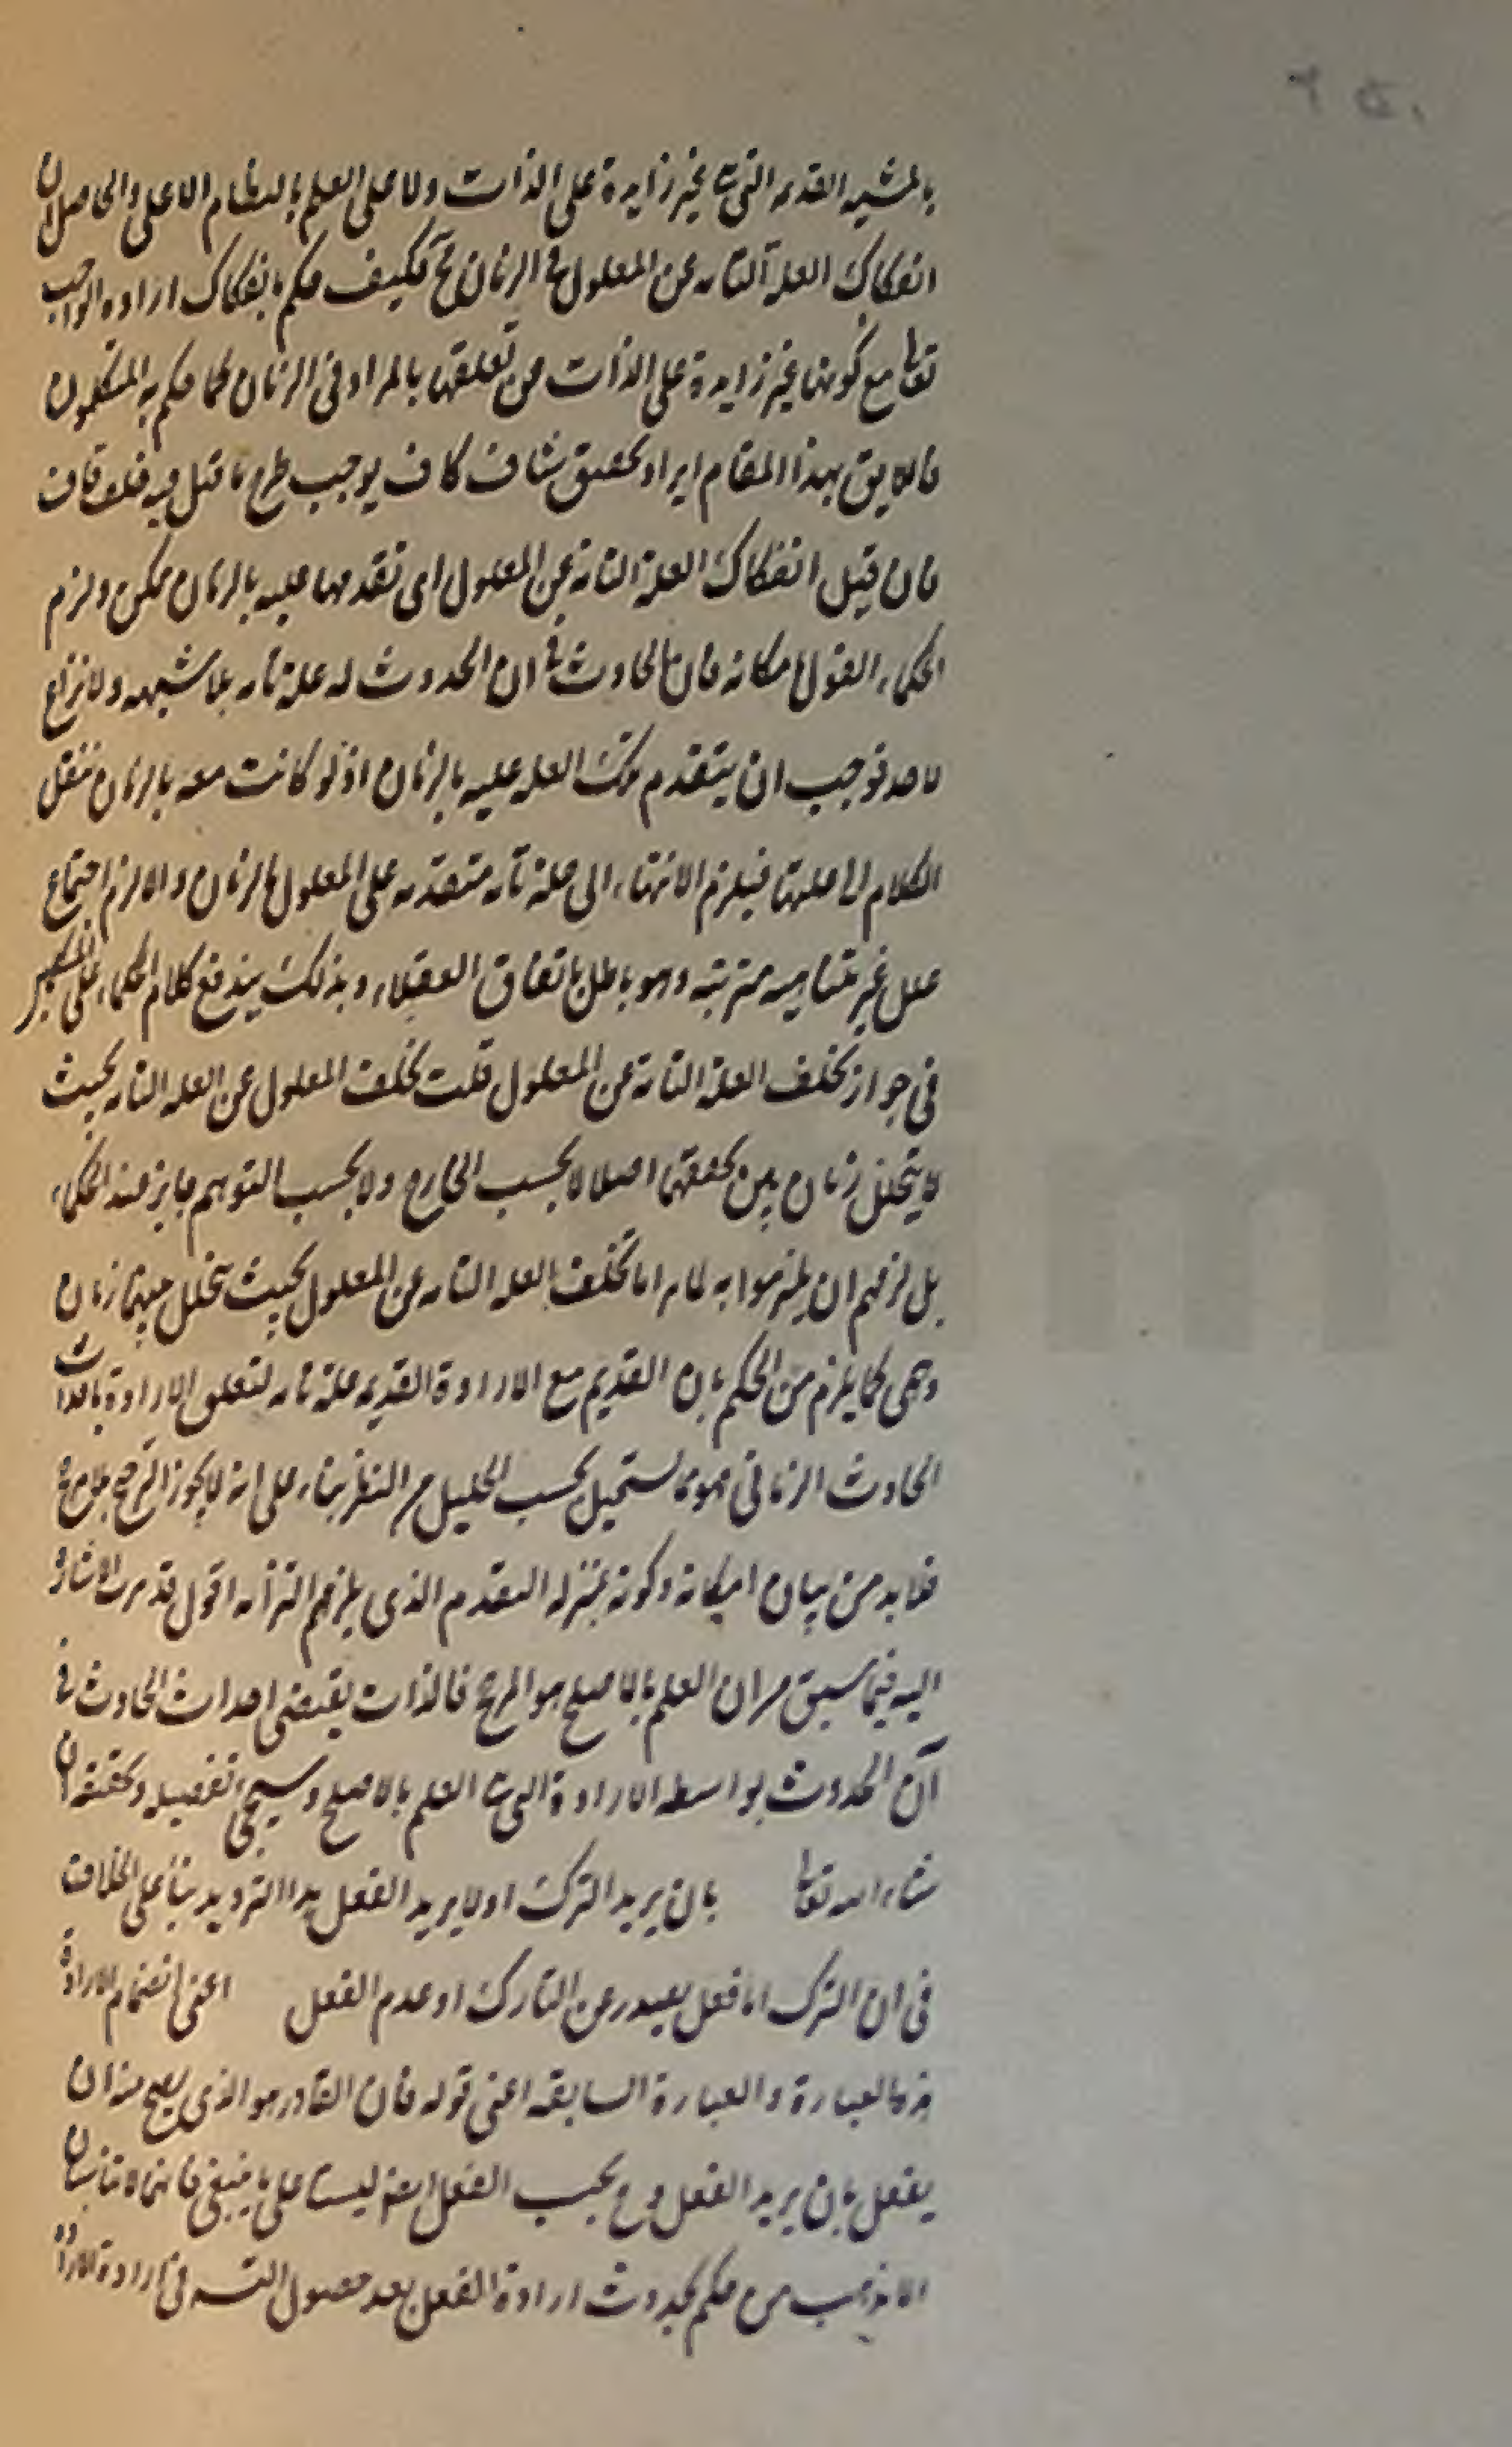 بالمشيه القديمه التى هى غير زايدة على الذات ولا على العلم بالنظام الاعلى والحاصل ان
انفكاك العلة التامه عن المعلول فى الزمان مح فكيف حكم بانفكاك ارادة الواجب
تعالى مع كونها غير زايدة على الذات عن تعلقها بالمراد فى الزمان كما حكم به المتكلمون
فاللايق بهذا المقام ايراد تحقيق شاف كاف يوجب طرح ما قيل فيه
فان قيل انفكاك العلة التامة عن المعلول اى تقدمها عليه بالزمان ممكن ولزم
الحكماء القول بامكانه فان الحادث فى ان الحدوث له علة تامه بلا شبهه ولا نزاع
لاحد فوجب ان يتقدم تلك العله عليه بالزمان اذ لو كانت معه بالزمان ننقل
الكلام الى علتها فيلزم الانتهاء الى علة تامه متقدمه على المعلول بالزمان والا لزم اجتماع
علل غير متناهيه مترتبه وهو باطل باتفاق العقلاء وبذلك يندفع كلام الحكماء على
فى جواز تخلف العلة التامة عن المعلول قلت تخلف المعلول عن العله التامه بحيث
لا يتخلل زمان بين تحققهما اصلا لا بحسب الخارج ولا بحسب التوهم جايز عند الحكماء
بل لزمهم ان يلتزموا به لما مر اما تخلف العله التامه عن المعلول بحيث يتخلل بينهما زمان
وهمى كما يلزم من الحكم بان القديم مع الارادة القديمه علة تامه لتعلق الارادة باحداث
الحادث الزمانى فهو مما يستحيل بحسب الجليل من النظر بناء على انه لا يجوز الترجيح بلا مرجح
فلا بد من بيان امكانه وكونه بمنزله التقدم الذى يلزمهم التزامه اقول قد مرت الاشارة
اليه فيما سبق من ان العلم بالاصلح هو المرجح فالذات يقتضى احداث الحادث فى
آن الحدوث بواسطه الارادة التى هى العلم بالاصلح وسيجئ تفصيله وتحقيقه ان
شاء الله تعالى بان يريد الترك او لا يريد الفعل هذا الترديد بناء على الخلاف
فى ان الترك اما فعل يصدر عن التارك او عدم الفعل اعنى انضمام الارادة
هذه العبارة والعبارة السابقه اعنى قوله فان القادر هو الذى يصح منه ان
يفعل بان يريد الفعل وح يجب الفعل ليستا على ما ينبغى فانهما لا تناسبان
الا مذهب من حكم بحدوث ارادة الفعل بعد حصول